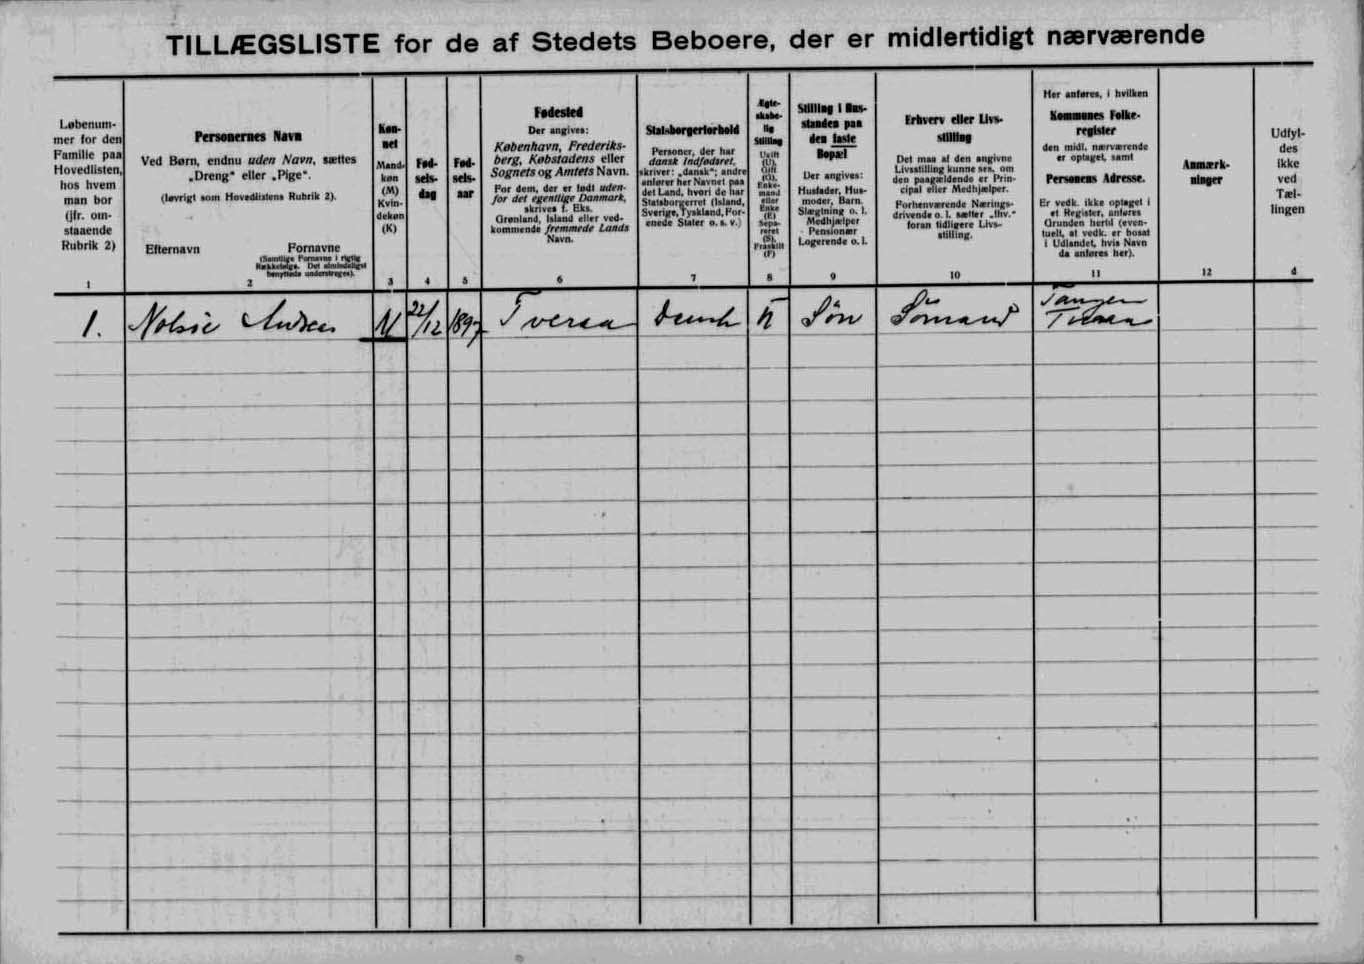 TILLÆGSLISTE for de af Stedets Beboere, der er midlertidigt nærværende
Løbenum-
mer for den
Familie paa
Hovedlisten,
hos hvem
man bor
(jfr. om-
staaende
Rubrik 2)
1
Personernes Navn
Ved Børn, endnu uden Navn, sættes
„Dreng“ eller „Pige“.
(Iøvrigt som Hovedlistens Rubrik 2).
Efternavn
Fornavne
(Samtlige Fornavne i rigtig
Rækkefølge. Det almindeligst
benyttede understreges).
2
Køn-
net
Mand-
køn
(M)
Kvin-
dekøn
(K)
3
Fød-
sels-
dag
4
Fød-
sels-
aar
5
Fødested
Der angives:
København, Frederiks-
berg, Købstadens eller
Sognets og Amtets Navn.
For dem, der er født uden-
for det egentlige Danmark,
skrives f. Eks.
Grønland, Island eller ved-
kommende fremmede Lands
Navn.
6
Statsborgerforhold
Personer, der har
dansk Indfødsret,
skriver: „dansk“; andre
anfører her Navnet paa
det Land, hvori de har
Statsborgerret (Island,
Sverige, Tyskland, For-
enede Stater o. s. v.)
7
Ægte-
skabe-
lig
Stilling
Ugift
(U),
Gift
(G),
Enke-
mand
eller
Enke
(E)
Sepa-
reret
(S),
Fraskilt
(F)
8
Stilling i Hus-
standen paa
den faste
Bopæl
Der angives:
Husfader, Hus-
moder, Barn,
Slægtning o. l.
Medhjælper
Pensionær
Logerende o. l.
9
Erhverv eller Livs-
stilling
Det maa af den angivne
Livsstilling kunne ses, om
den paagældende er Prin-
cipal eller Medhjælper.
Forhenværende Nærings-
drivende o. l. sætter „fhv.“
foran tidligere Livs-
stilling.
10
Her anføres, i hvilken
Kommunes Folke-
register
den midl. nærværende
er optaget, samt
Personens Adresse.
Er vedk. ikke optaget i
et Register, anføres
Grunden hertil (even-
tuelt, at vedk. er bosat
i Udlandet, hvis Navn
da anføres her).
11
Anmærk-
ninger
12
Udfyl-
des
ikke
ved
Tæl-
lingen
d
1. Nolsøe Andreas M 22/12 1897 Tveraa Dansk U Søn Sømand
Tveraa